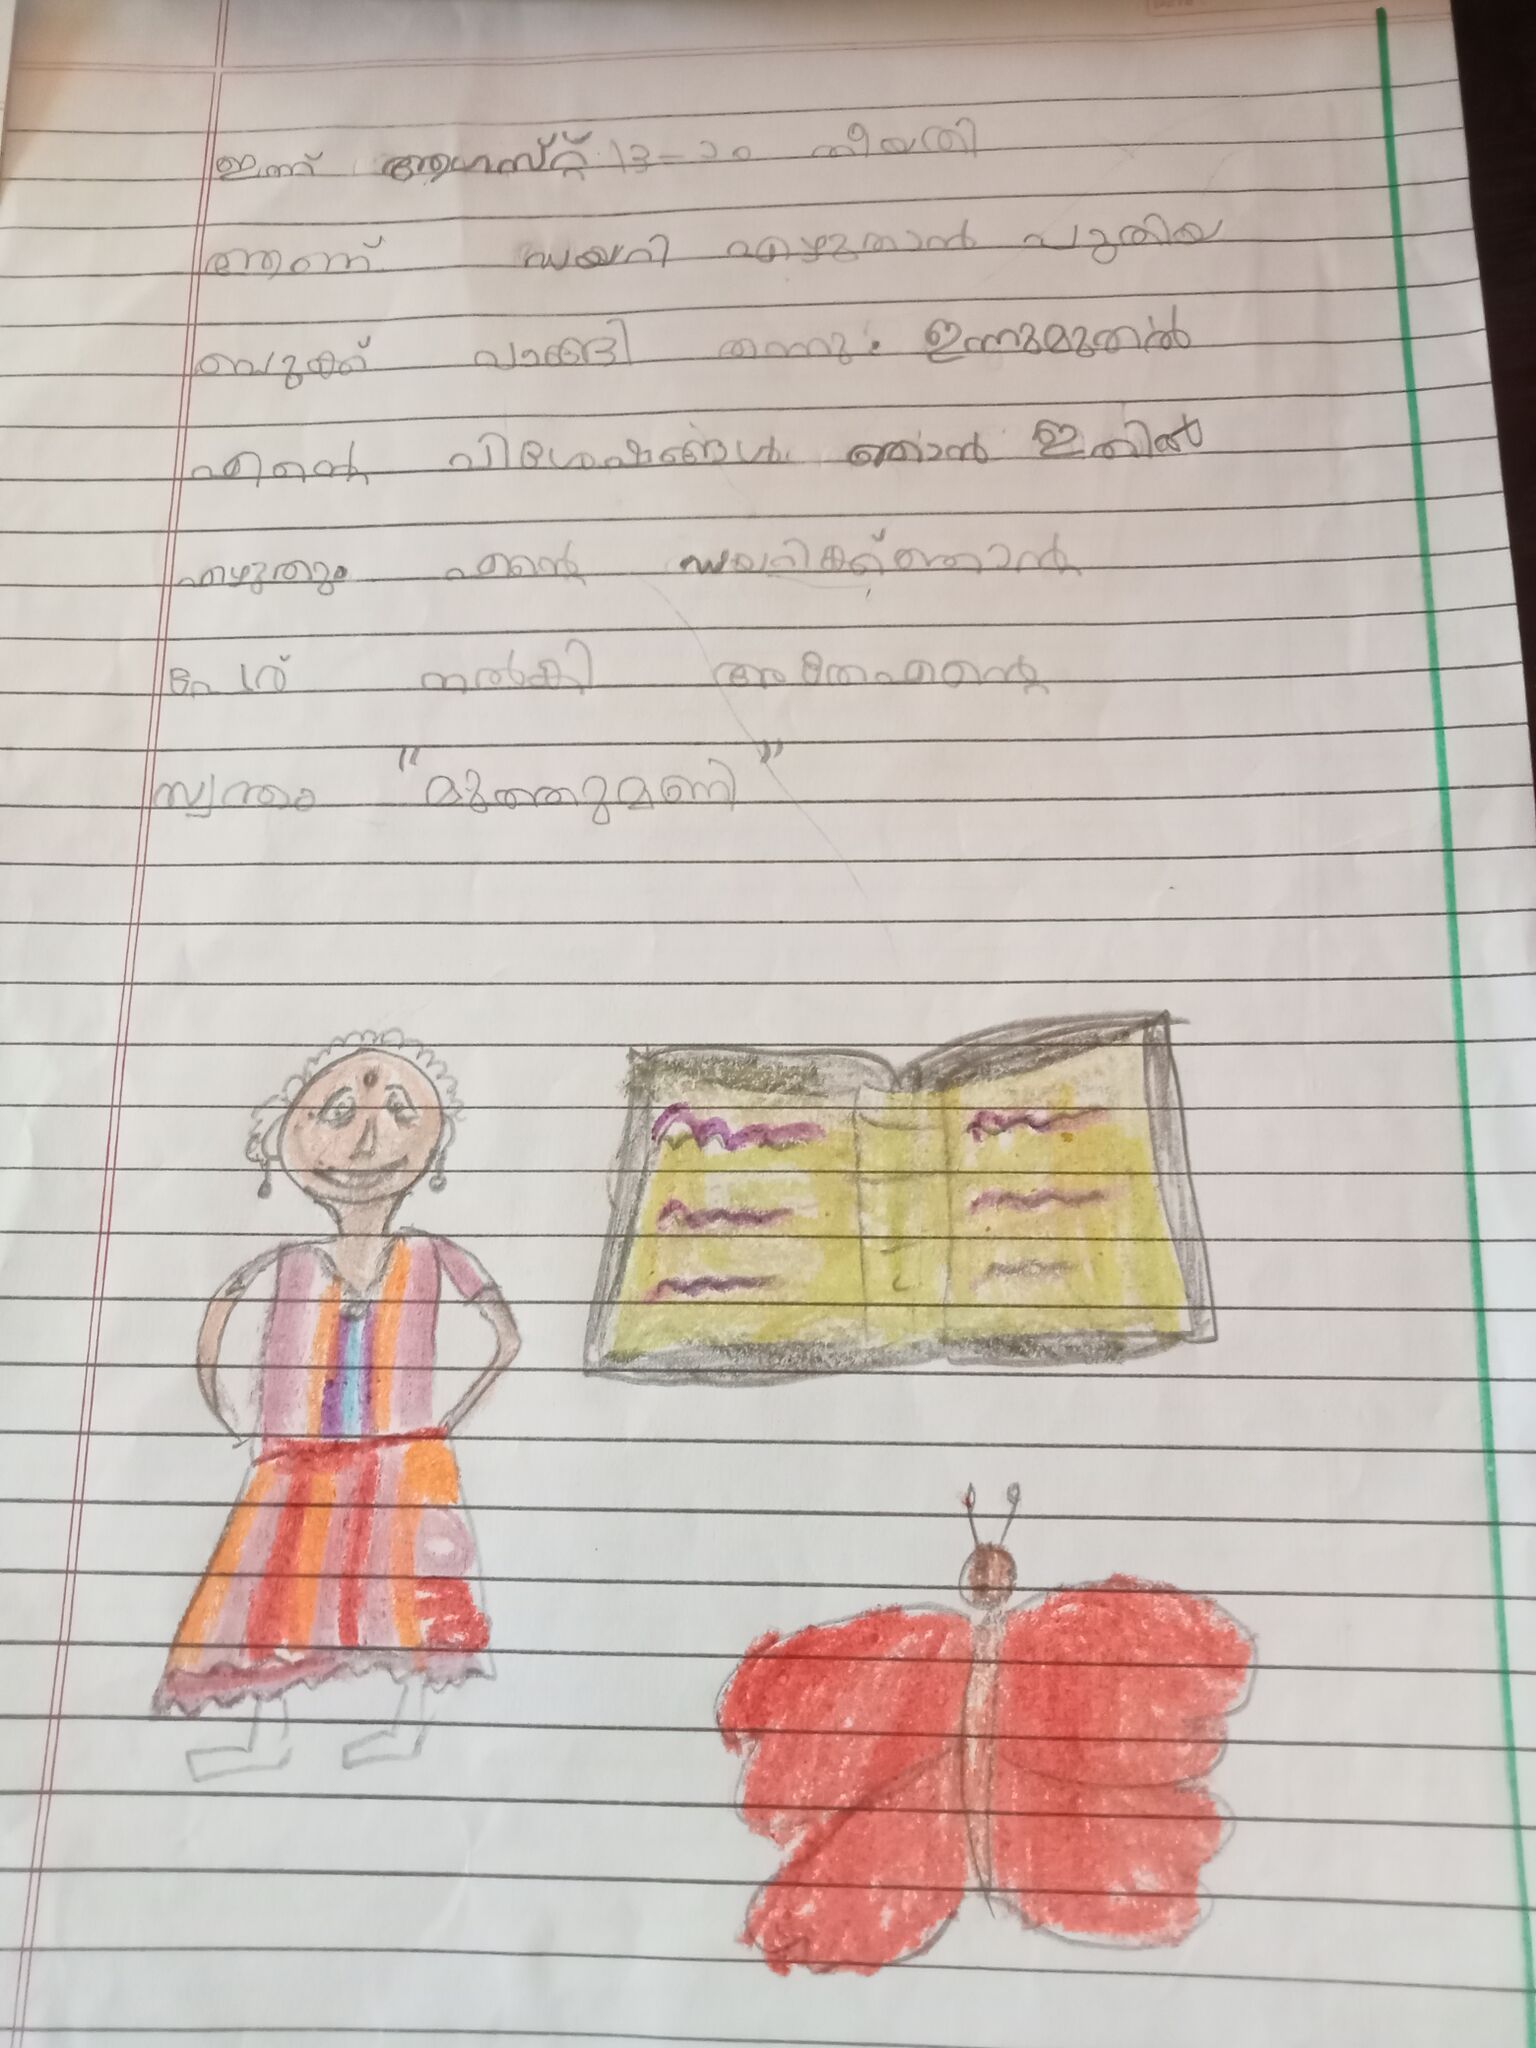 ഇന്ന് ആഗസ്റ്റ് 13-ാം തീയതി
ആണ് ഡയറി എഴുതാൻ പുതിയ
ബുക്ക് വാങ്ങി തന്നു. ഇന്നുമുതൽ
എന്റെ വിശേഷങ്ങൾ ഞാൻ ഇതിൽ
എഴുതും എന്റെ ഡയറിക്ക്ഞാൻ
പേര് നൽകി അതഎന്റെ
സ്വന്തം "മുത്തുമണി"